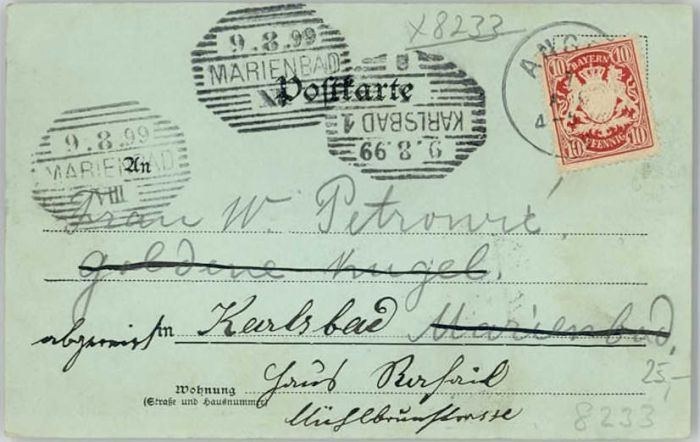 x8233
9.8.99
MARIENBAD
Postkarte
KARLSBAD 1
9.8.99
10 10
BAYERN
PFENNIG
10 10
9.8.99
MARIENBAD
VIII
An
Frau W. Petrowić,
goldene Kugel.
abgereist in Karlsbad Marienbad,
25,-
Wohnung
(Straße und Hausnummer)
Haus Rafail
Mühlbrunstrasse
8233